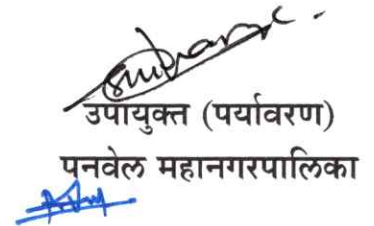 उपायुक्त (पर्यावरण)
पनवेल महानगरपालिका